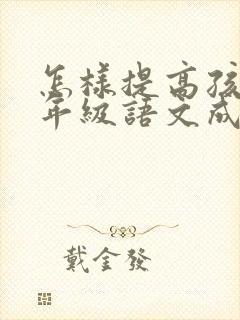 怎樣提高孩
年級語文成
戴金發